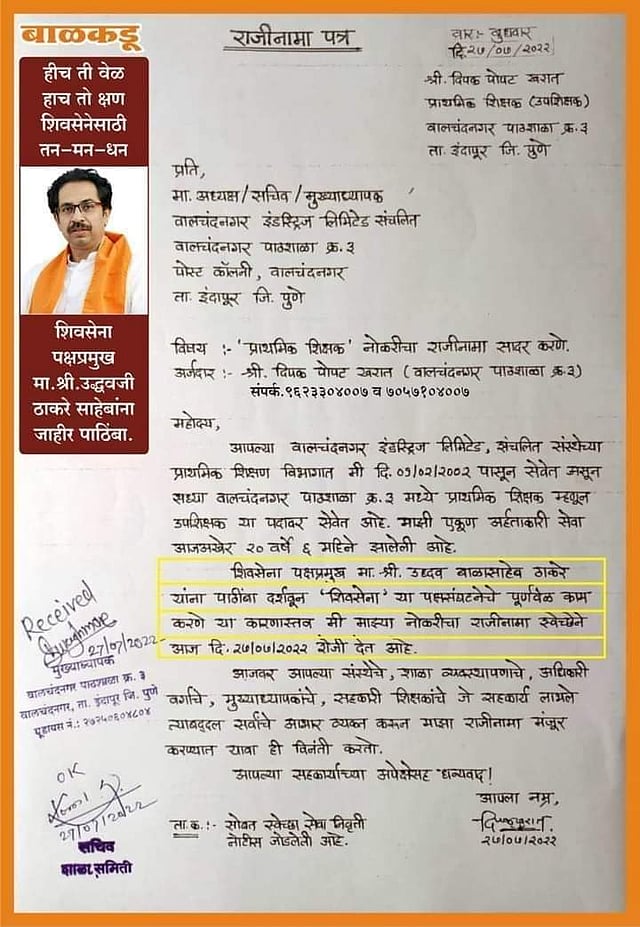 बाळकडू
हीच ती वेळ
हाच तो क्षण
शिवसेनेसाठी
तन-मन-धन
शिवसेना
पक्षप्रमुख
मा.श्री.उद्धवजी
ठाकरे साहेबांना
जाहीर पाठिंबा.
राजीनामा पत्र
वार:- बुधवार
दि.२७/०७/२०२२
श्री. दिपक पोपट खरात
प्राथमिक शिक्षक (उपशिक्षक)
वालचंदनगर पाठशाळा क्र.३
ता. इंदापूर जि. पुणे
प्रति,
मा. अध्यक्ष/सचिव/मुख्याध्यापक
वालचंदनगर इंडस्ट्रिज लिमिटेड संचलित
वालचंदनगर पाठशाळा क्र.३
पोस्ट कॉलनी, वालचंदनगर
ता. इंदापूर जि. पुणे
विषय :- 'प्राथमिक शिक्षक' नोकरीचा राजीनामा सादर करणे.
अर्जदार :- श्री. दिपक पोपट खरात (वालचंदनगर पाठशाळा क्र.३)
संपर्क.९६२३३०४००७ व ७०५७१०४००७
महोदय,
आपल्या वालचंदनगर इंडस्ट्रिज लिमिटेड, संचलित संस्थेच्या
प्राथमिक शिक्षण विभागात मी दि. ०१/०२/२००२ पासून सेवेत असून
सध्या वालचंदनगर पाठशाळा क्र.३ मध्ये प्राथमिक शिक्षक म्हणून
उपशिक्षक या पदावर सेवेत आहे. माझी एकूण अर्हताकारी सेवा
आजअखेर २० वर्षे ६ महिने झालेली आहे.
शिवसेना पक्षप्रमुख मा. श्री. उद्धव बाळासाहेब ठाकरे
यांना पाठींबा दर्शवून 'शिवसेना' या पक्षसंघटनेचे पूर्णवेळ काम
करणे या कारणास्तव मी माझ्या नोकरीचा राजीनामा स्वेच्छेने
आज दि. २७/०७/२०२२ रोजी देत आहे.
आजवर आपल्या संस्थेचे, शाळा व्यवस्थापनाचे, अधिकारी
वर्गाचे, मुख्याध्यापकांचे, सहकारी शिक्षकांचे जे सहकार्य लाभले
त्याबद्दल सर्वांचे आभार व्यक्त करून माझा राजीनामा मंजूर
करण्यात यावा ही विनंती करतो.
आपल्या सहकार्याच्या अपेक्षेसह धन्यवाद!
आपला नम्र,
२७/०७/२०२२
ता.क.:- सोबत स्वेच्छा सेवा निवृत्ती
नोटीस जोडलेली आहे.
Received
27/07/2022
मुख्याध्यापक
वालचंदनगर पाठशाळा क्र. ३
वालचंदनगर, ता. इंदापूर, जि. पुणे
यूडायस नं.: २७२५०६०४८०४
OK
27/07/2022
सचिव
शाळा समिती